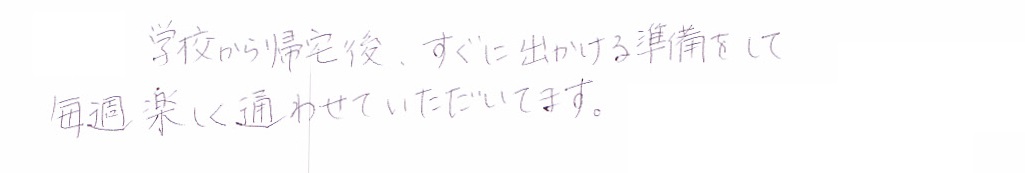 学校から帰宅後、すぐに出かける準備をして
毎週楽しく通わせていただいてます。